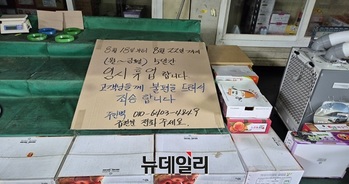 8월 18일부터 8월 22일까지
(월~금요일) 5일간
일시휴업 합니다.
고객님들께 불편을 드려서
죄송합니다
주인백 010-6403-4849
전화 주세요.
뉴데일리